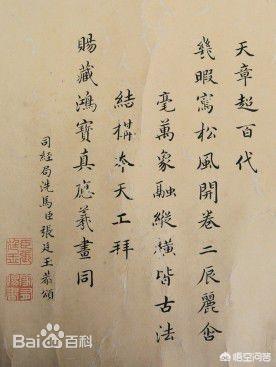 天章超百代
幾暇寫松風開卷二辰麗含
毫萬象融縱橫皆古法
結構夲天工拜
賜藏鴻寶真應羲畫同
司經局洗馬臣張廷玉恭頌
Bai百科
悟空问答